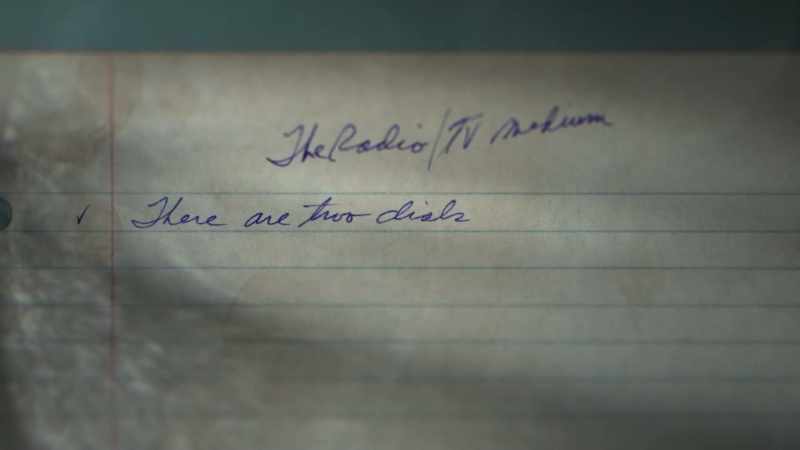 The Radio/TV medium
✓ There are two dials